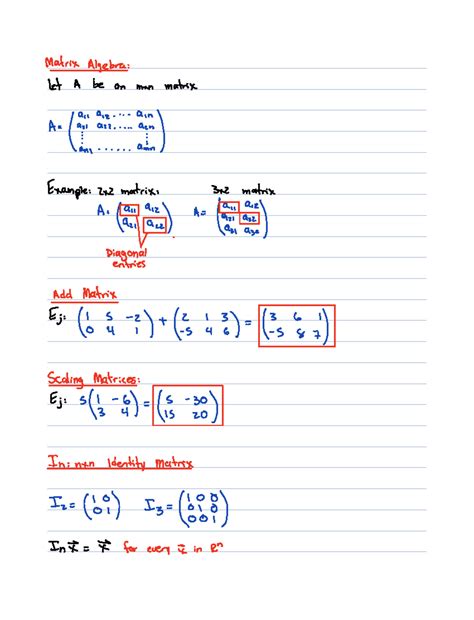 Matrix Algebra:
Let A be an mxn matrix
A = ( a11 a12 ... a1n
a21 a22 .... a2n
⋮ ⋮
am1 ...... amn )
Example: 2x2 matrix: 3x2 matrix
A = ( a11 a12 A = ( a11 a12
a21 a22 ) a21 a22
a31 a32 )
Diagonal
entries
Add Matrix
Ej: ( 1 5 -2 + ( 2 1 3 = ( 3 6 1
0 4 1 ) -5 4 6 ) -5 8 7 )
Scaling Matrices:
Ej: 5 ( 1 -6 = ( 5 -30
3 4 ) 15 20 )
In: nxn Identity Matrix
I2 = ( 1 0 I3 = ( 1 0 0
0 1 ) 0 1 0
0 0 1 )
In x⃗ = x⃗ for every x⃗ in Rⁿ